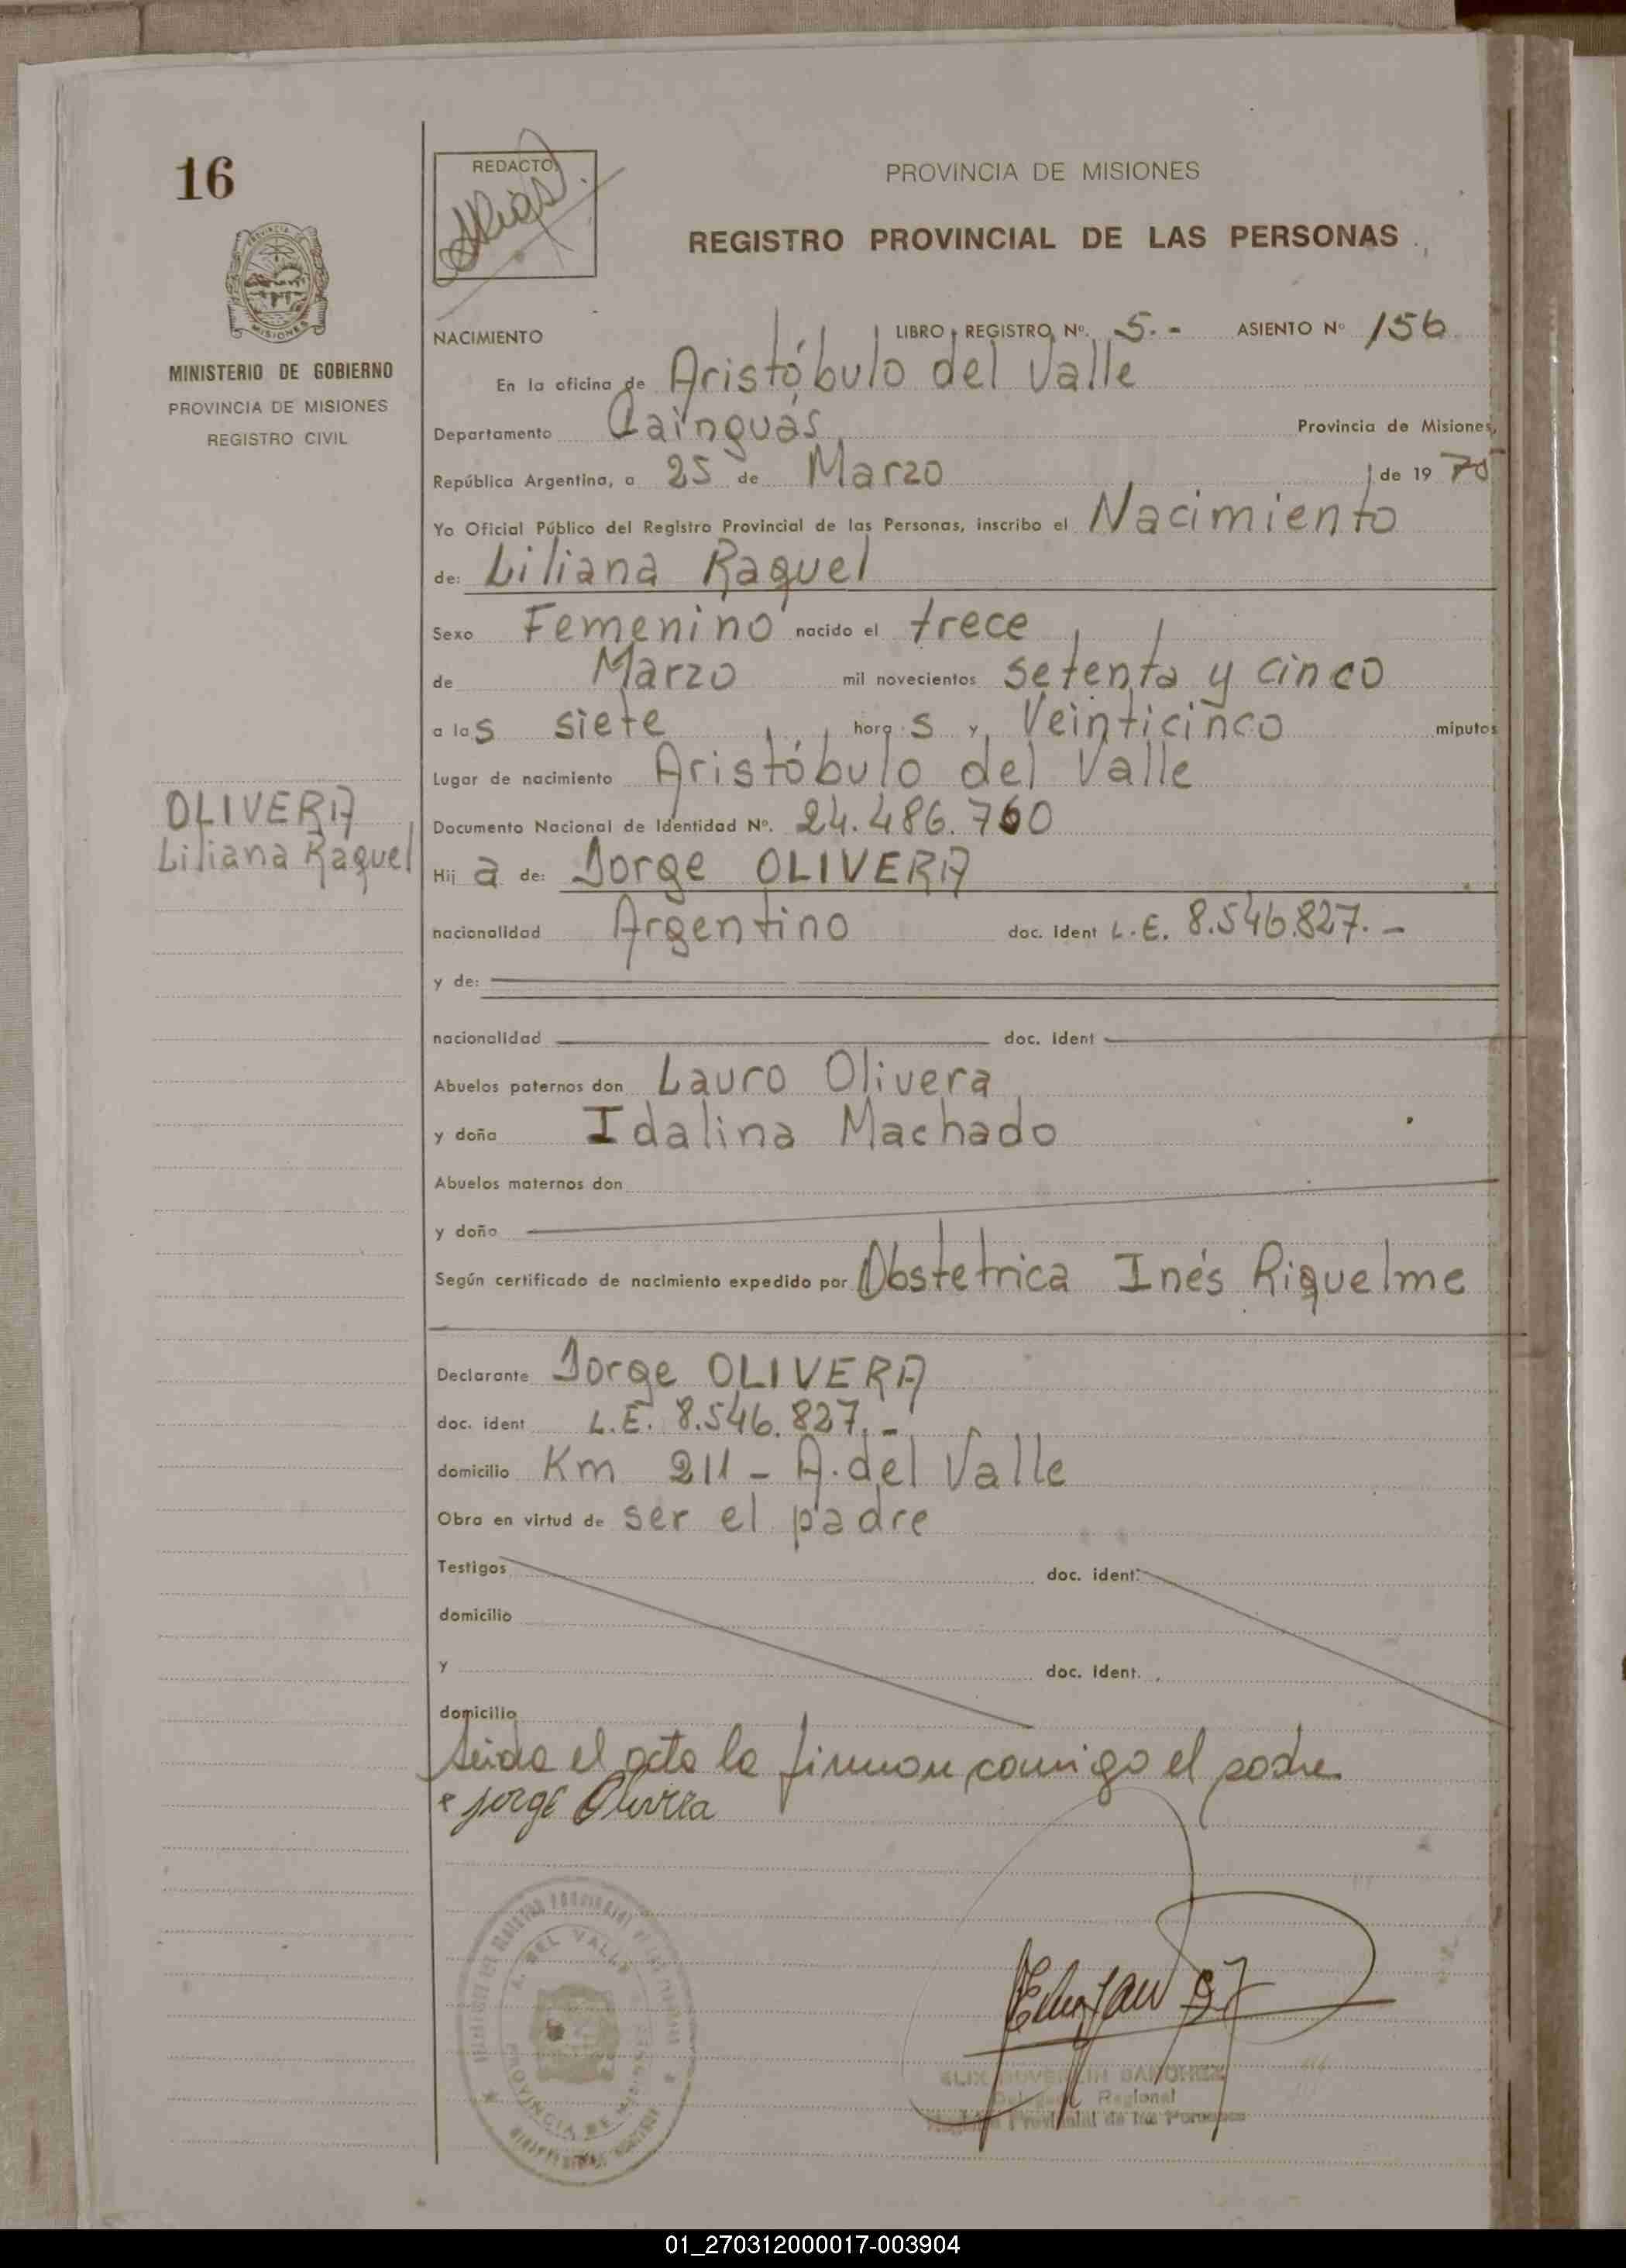 16
REDACTO
PROVINCIA DE MISIONES
REGISTRO PROVINCIAL DE LAS PERSONAS
PROVINCIA
MISIONES
MINISTERIO DE GOBIERNO
PROVINCIA DE MISIONES
REGISTRO CIVIL
NACIMIENTO LIBRO REGISTRO Nº. 5.- ASIENTO Nº 156
En la oficina de Aristóbulo del Valle
Departamento Cainguás Provincia de Misiones,
República Argentina, a 25 de Marzo de 1975
Yo Oficial Público del Registro Provincial de las Personas, inscribo el Nacimiento
de: Liliana Raquel
Sexo Femenino nacido el trece
de Marzo mil novecientos setenta y cinco
a las siete horas y Veinticinco minutos
Lugar de nacimiento Aristóbulo del Valle
OLIVERA
Liliana Raquel
Documento Nacional de Identidad Nº. 24.486.760
Hija de: Jorge OLIVERA
nacionalidad Argentino doc. ident L.E. 8.546.827.-
y de:
nacionalidad doc. ident
Abuelos paternos don Lauro Olivera
y doña Idalina Machado
Abuelos maternos don
y doña
Según certificado de nacimiento expedido por Obstetrica Inés Riquelme
Declarante Jorge OLIVERA
doc. ident L.E. 8.546.827.-
domicilio Km 211 - A. del Valle
Obra en virtud de ser el padre
Testigos doc. ident.
domicilio
y doc. Ident.
domicilio
Leida el acta la firman comigo el padre
Jorge Olivera
A. DEL VALLE
PROVINCIA DE MISIONES
SANCHEZ
Regional
Provincial de las Personas
01_270312000017-003904